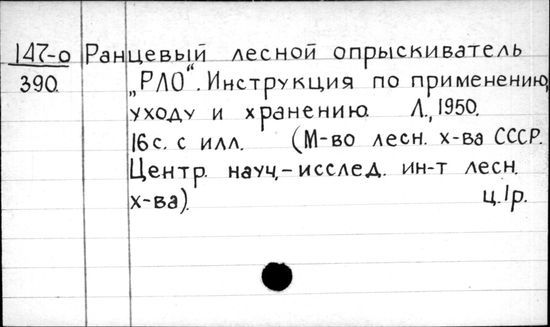 147-о Ранцевый лесной опрыскиватель
390. „РЛО“. Инструкция по применению,
уходу и хранению. Л., 1950.
16 с. с илл. (М-во лесн. х-ва СССР.
Центр. науч.-исслед. ин-т лесн.
х-ва). ц. 1р.